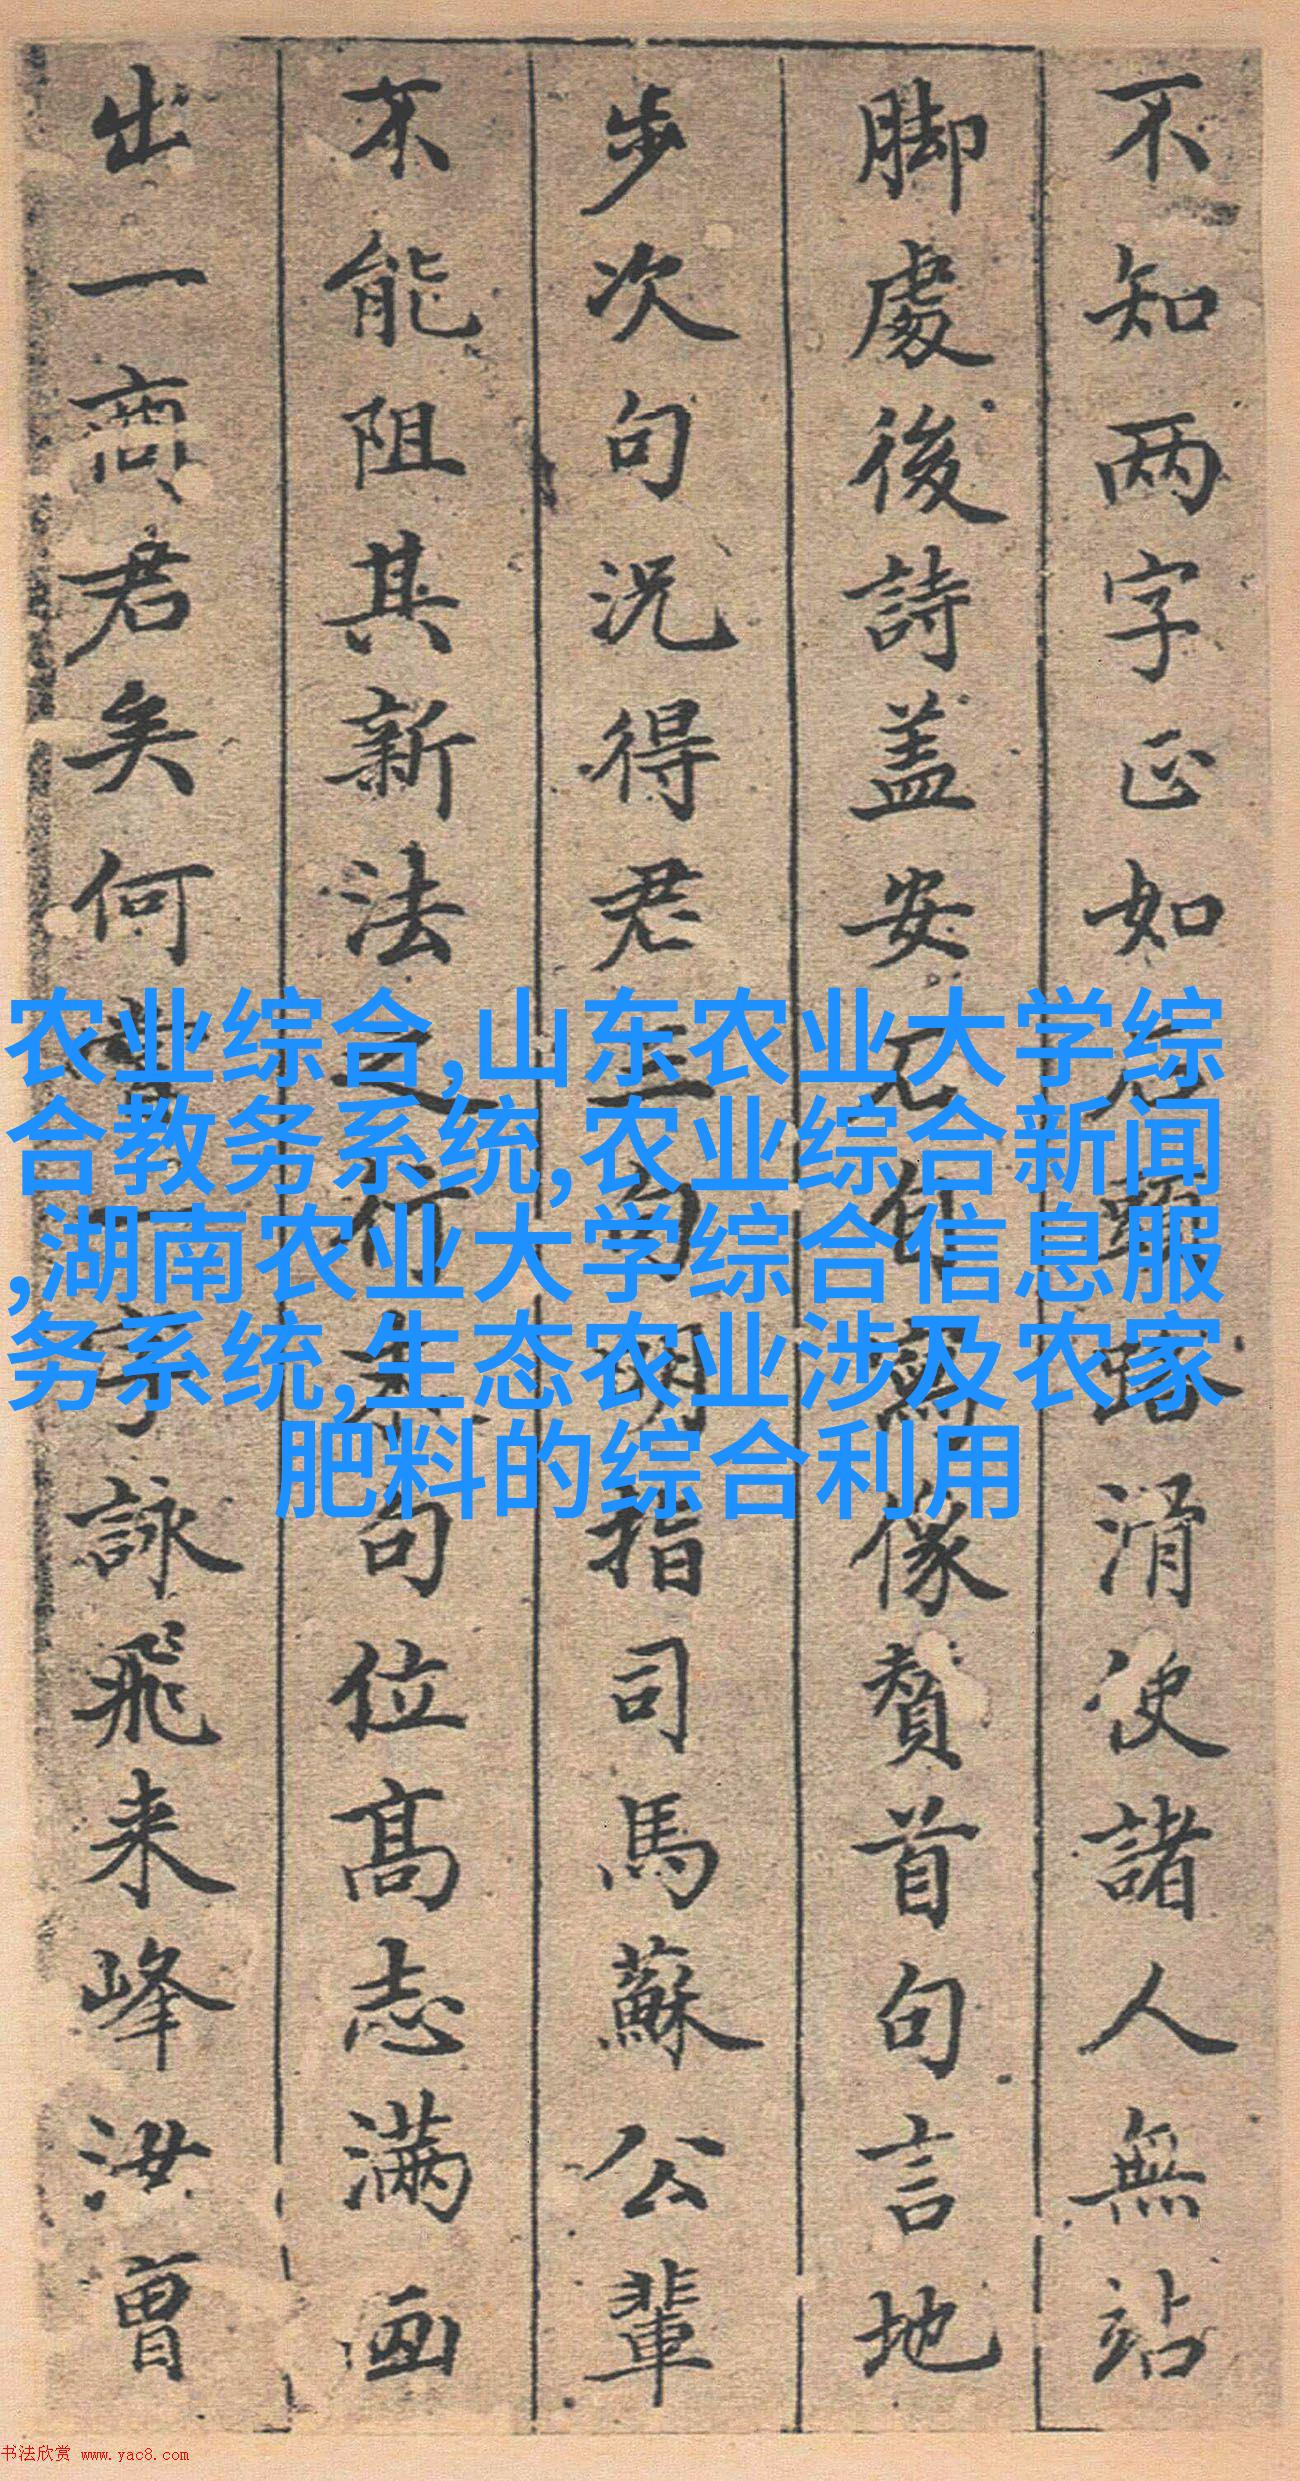 不知两字正如石頭路滑使諸人無站
脚處後詩盖安石自寫像賛首句言地
步次句况得君三句明指司馬蘇公輩
不能阻其新法之行末句位高志满画
出一商君矣何曾一字詠飛来峰汝曾
农业综合,山东农业大学综
合教务系统,农业综合新闻
,湖南农业大学综合信息服
务系统,生态农业涉及农家
肥料的综合利用
书法欣赏 www.yac8.com